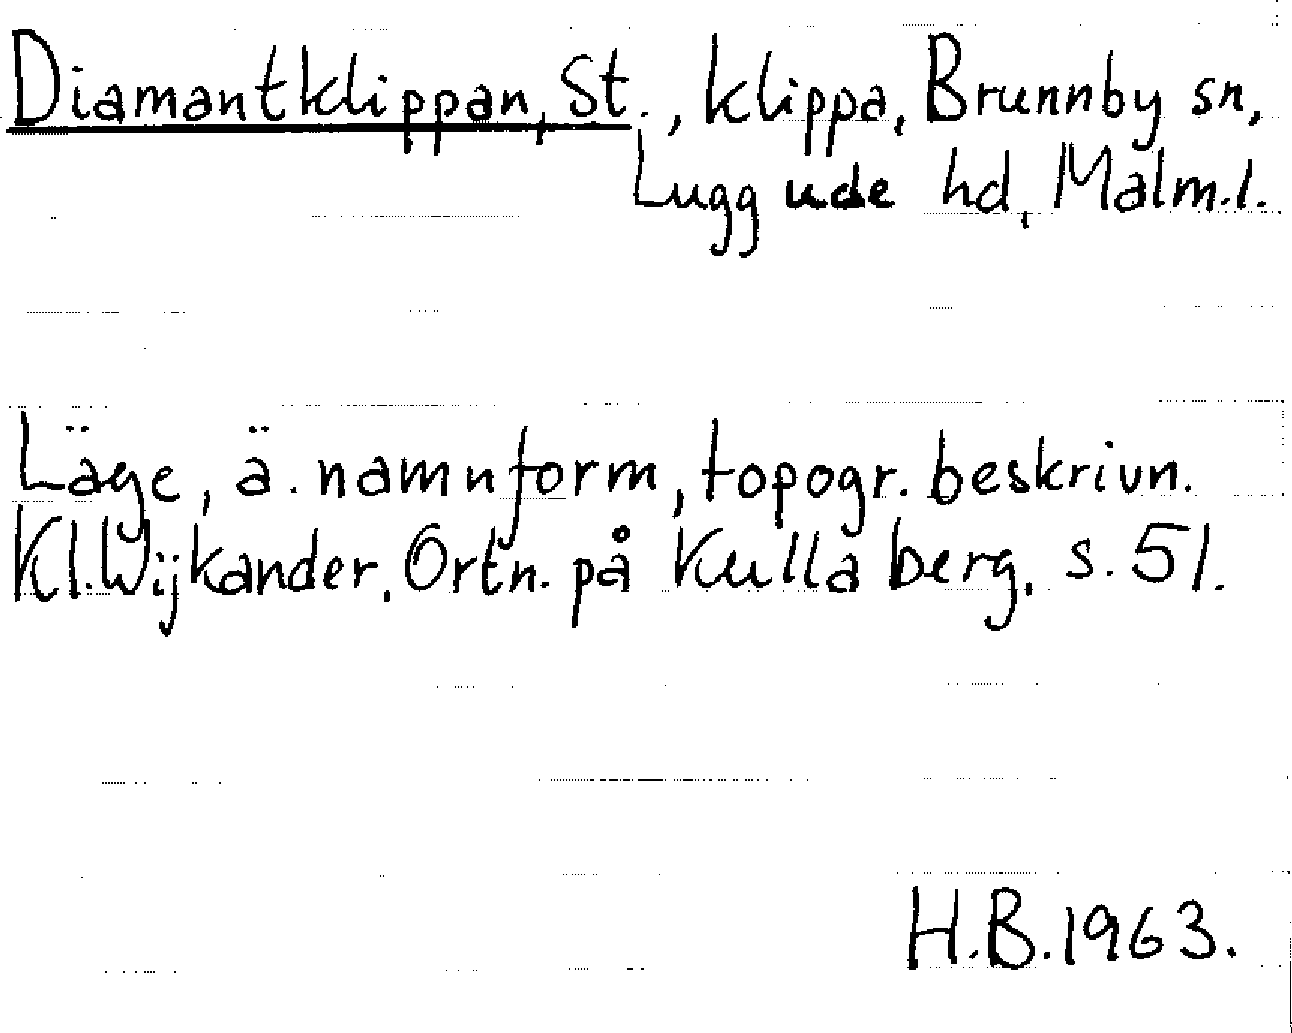 Diamantklippan, St., klippa, Brunnby sn,
Luggude hd, Malm.l.
Läge, ä. namnform, topogr. beskrivn.
Kl. Wijkander, Ortn. på Kullaberg, s. 51.
H.B. 1963.